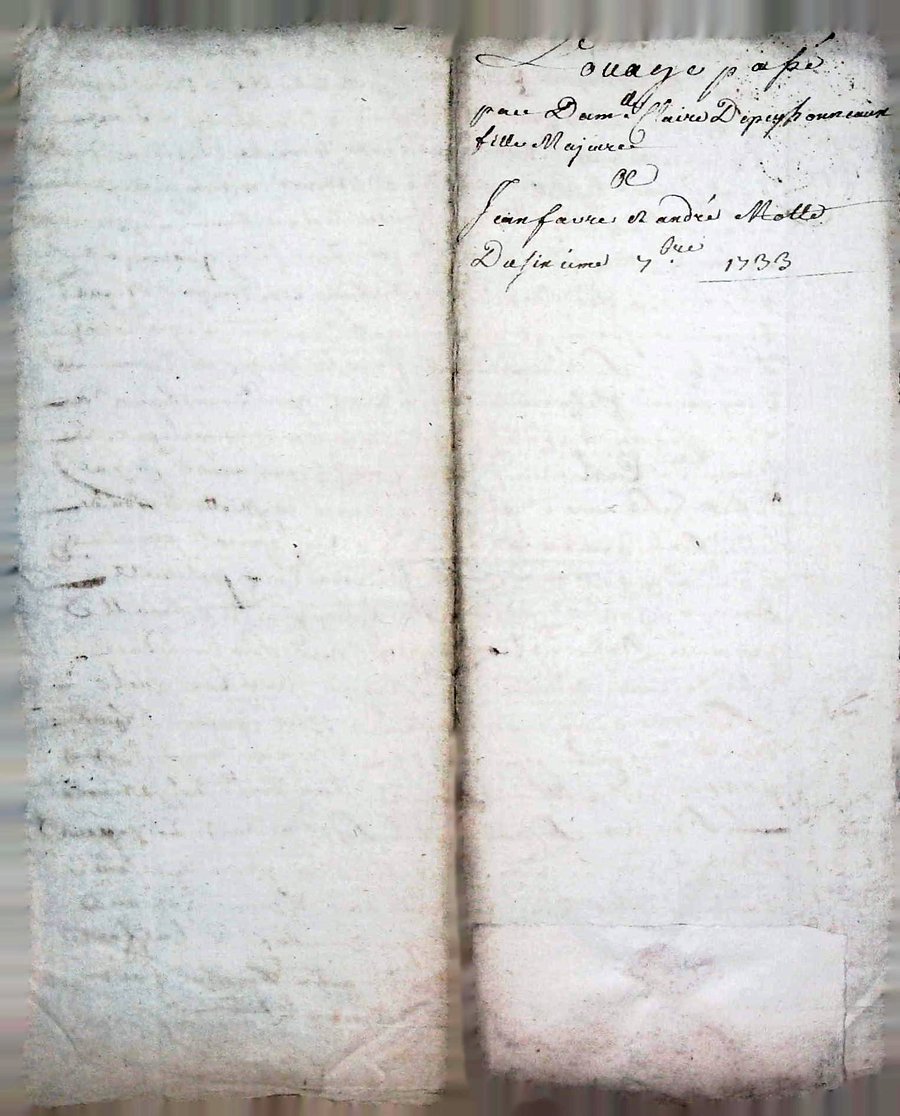 Louage passé
par Dam.lle Claire Depeyssonneaux
fille Majeure
A
Jean favre et andré Motte
Du sixième 7.bre 1733